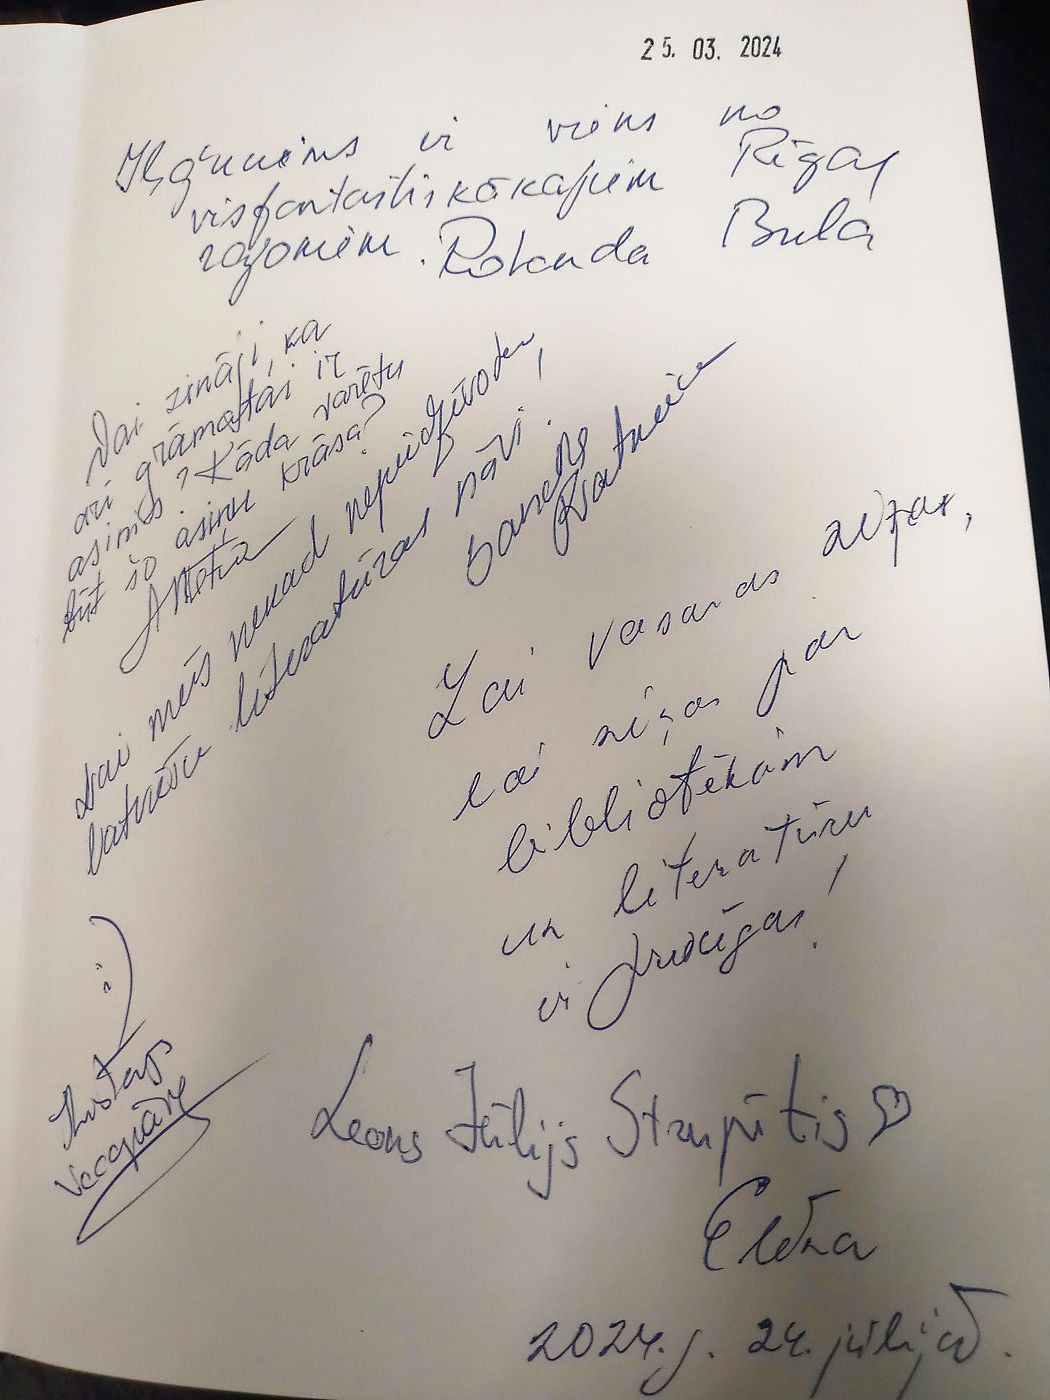 25. 03. 2024
Iļģuciems ir viens no
visfantastiskākajiem Rīgas
rajoniem. Rolanda Bula
Vai zināji, ka
arī grāmatai ir
asinis? Kāda varētu
būt šo asiņu krāsa?
Lai mēs nekad nepiedzīvotu,
latviešu literatūras nāvi.
Lai vasaras ziņas,
lai ziņas par
bibliotēkām
un literatūru
ir priecīgas!
:)
Vecgrāvis
Leons Jūlijs Strupītis
Elēna
2024. g. 24. jūlijā.